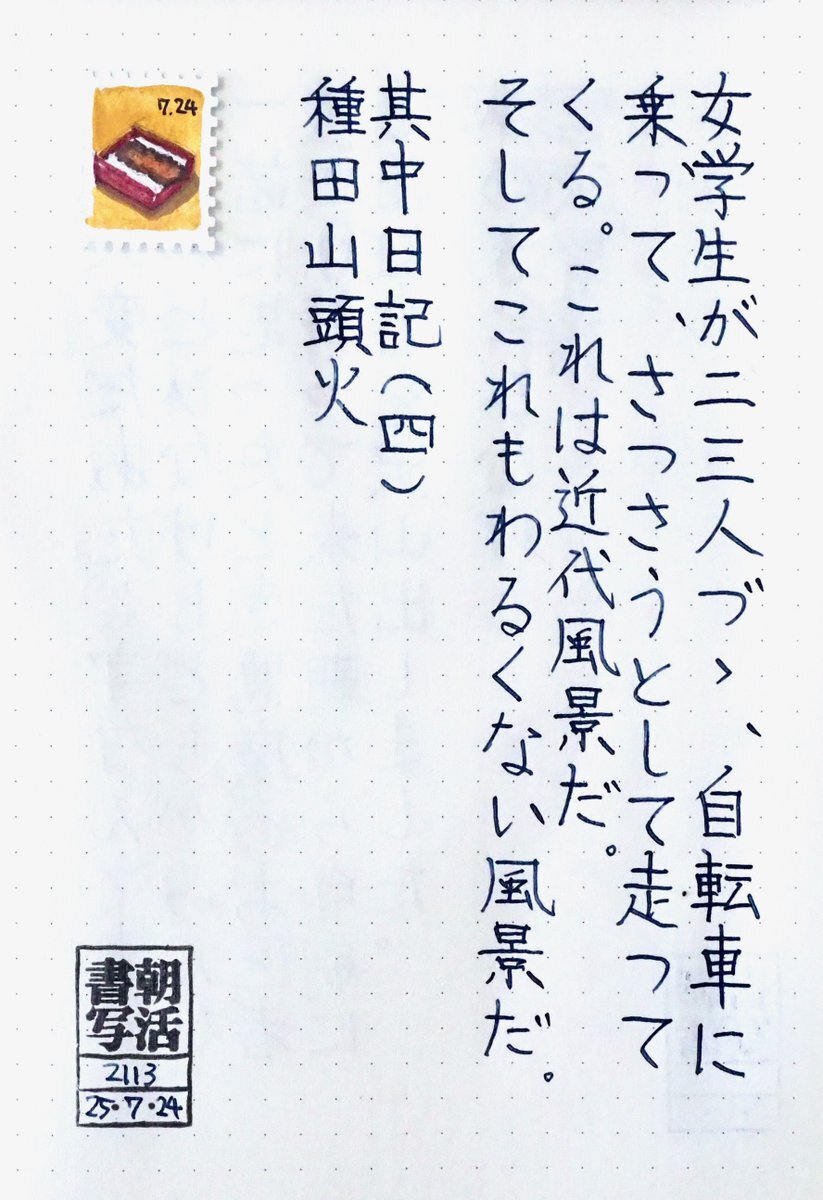 女学生が二三人づゝ、自転車に
乗って、さつさうとして走つて
くる。これは近代風景だ。
そしてこれもわるくない風景だ。
其中日記(四)
種田山頭火
7.24
朝活
書写
2113
25・7・24